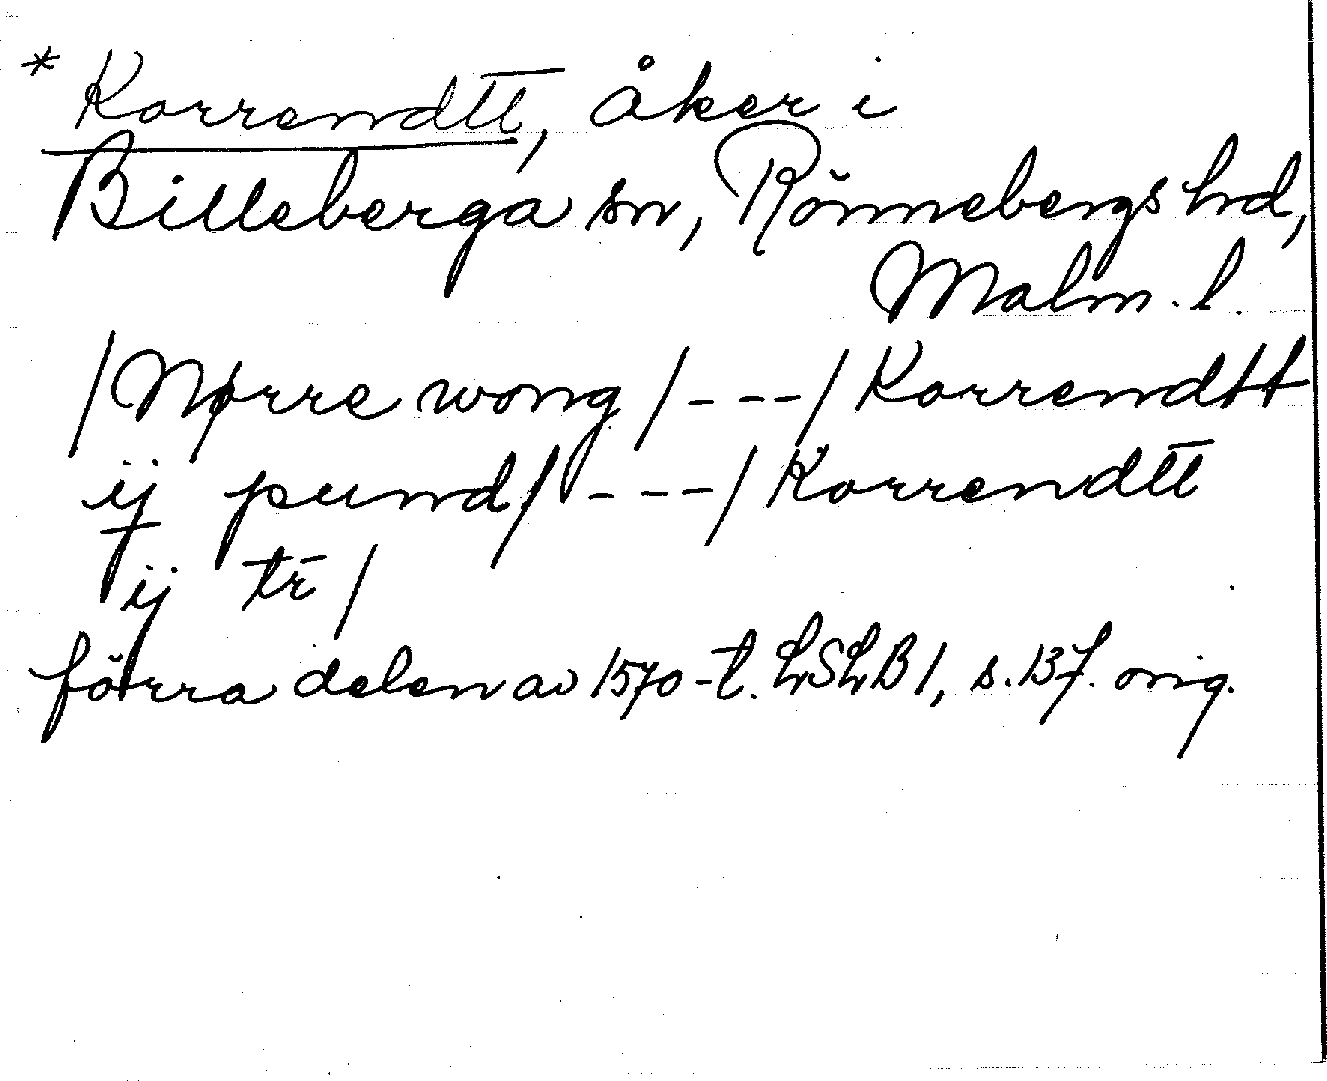 * Korrendtt, åker i
Billeberga sn, Rönnebergs hd,
Malm. l.
/Nørre wong/---/Korrendtt
ij pund/---/Korrendtt
ij tr/
förra delen av 1570-t. LSLB1, s.137. orig.